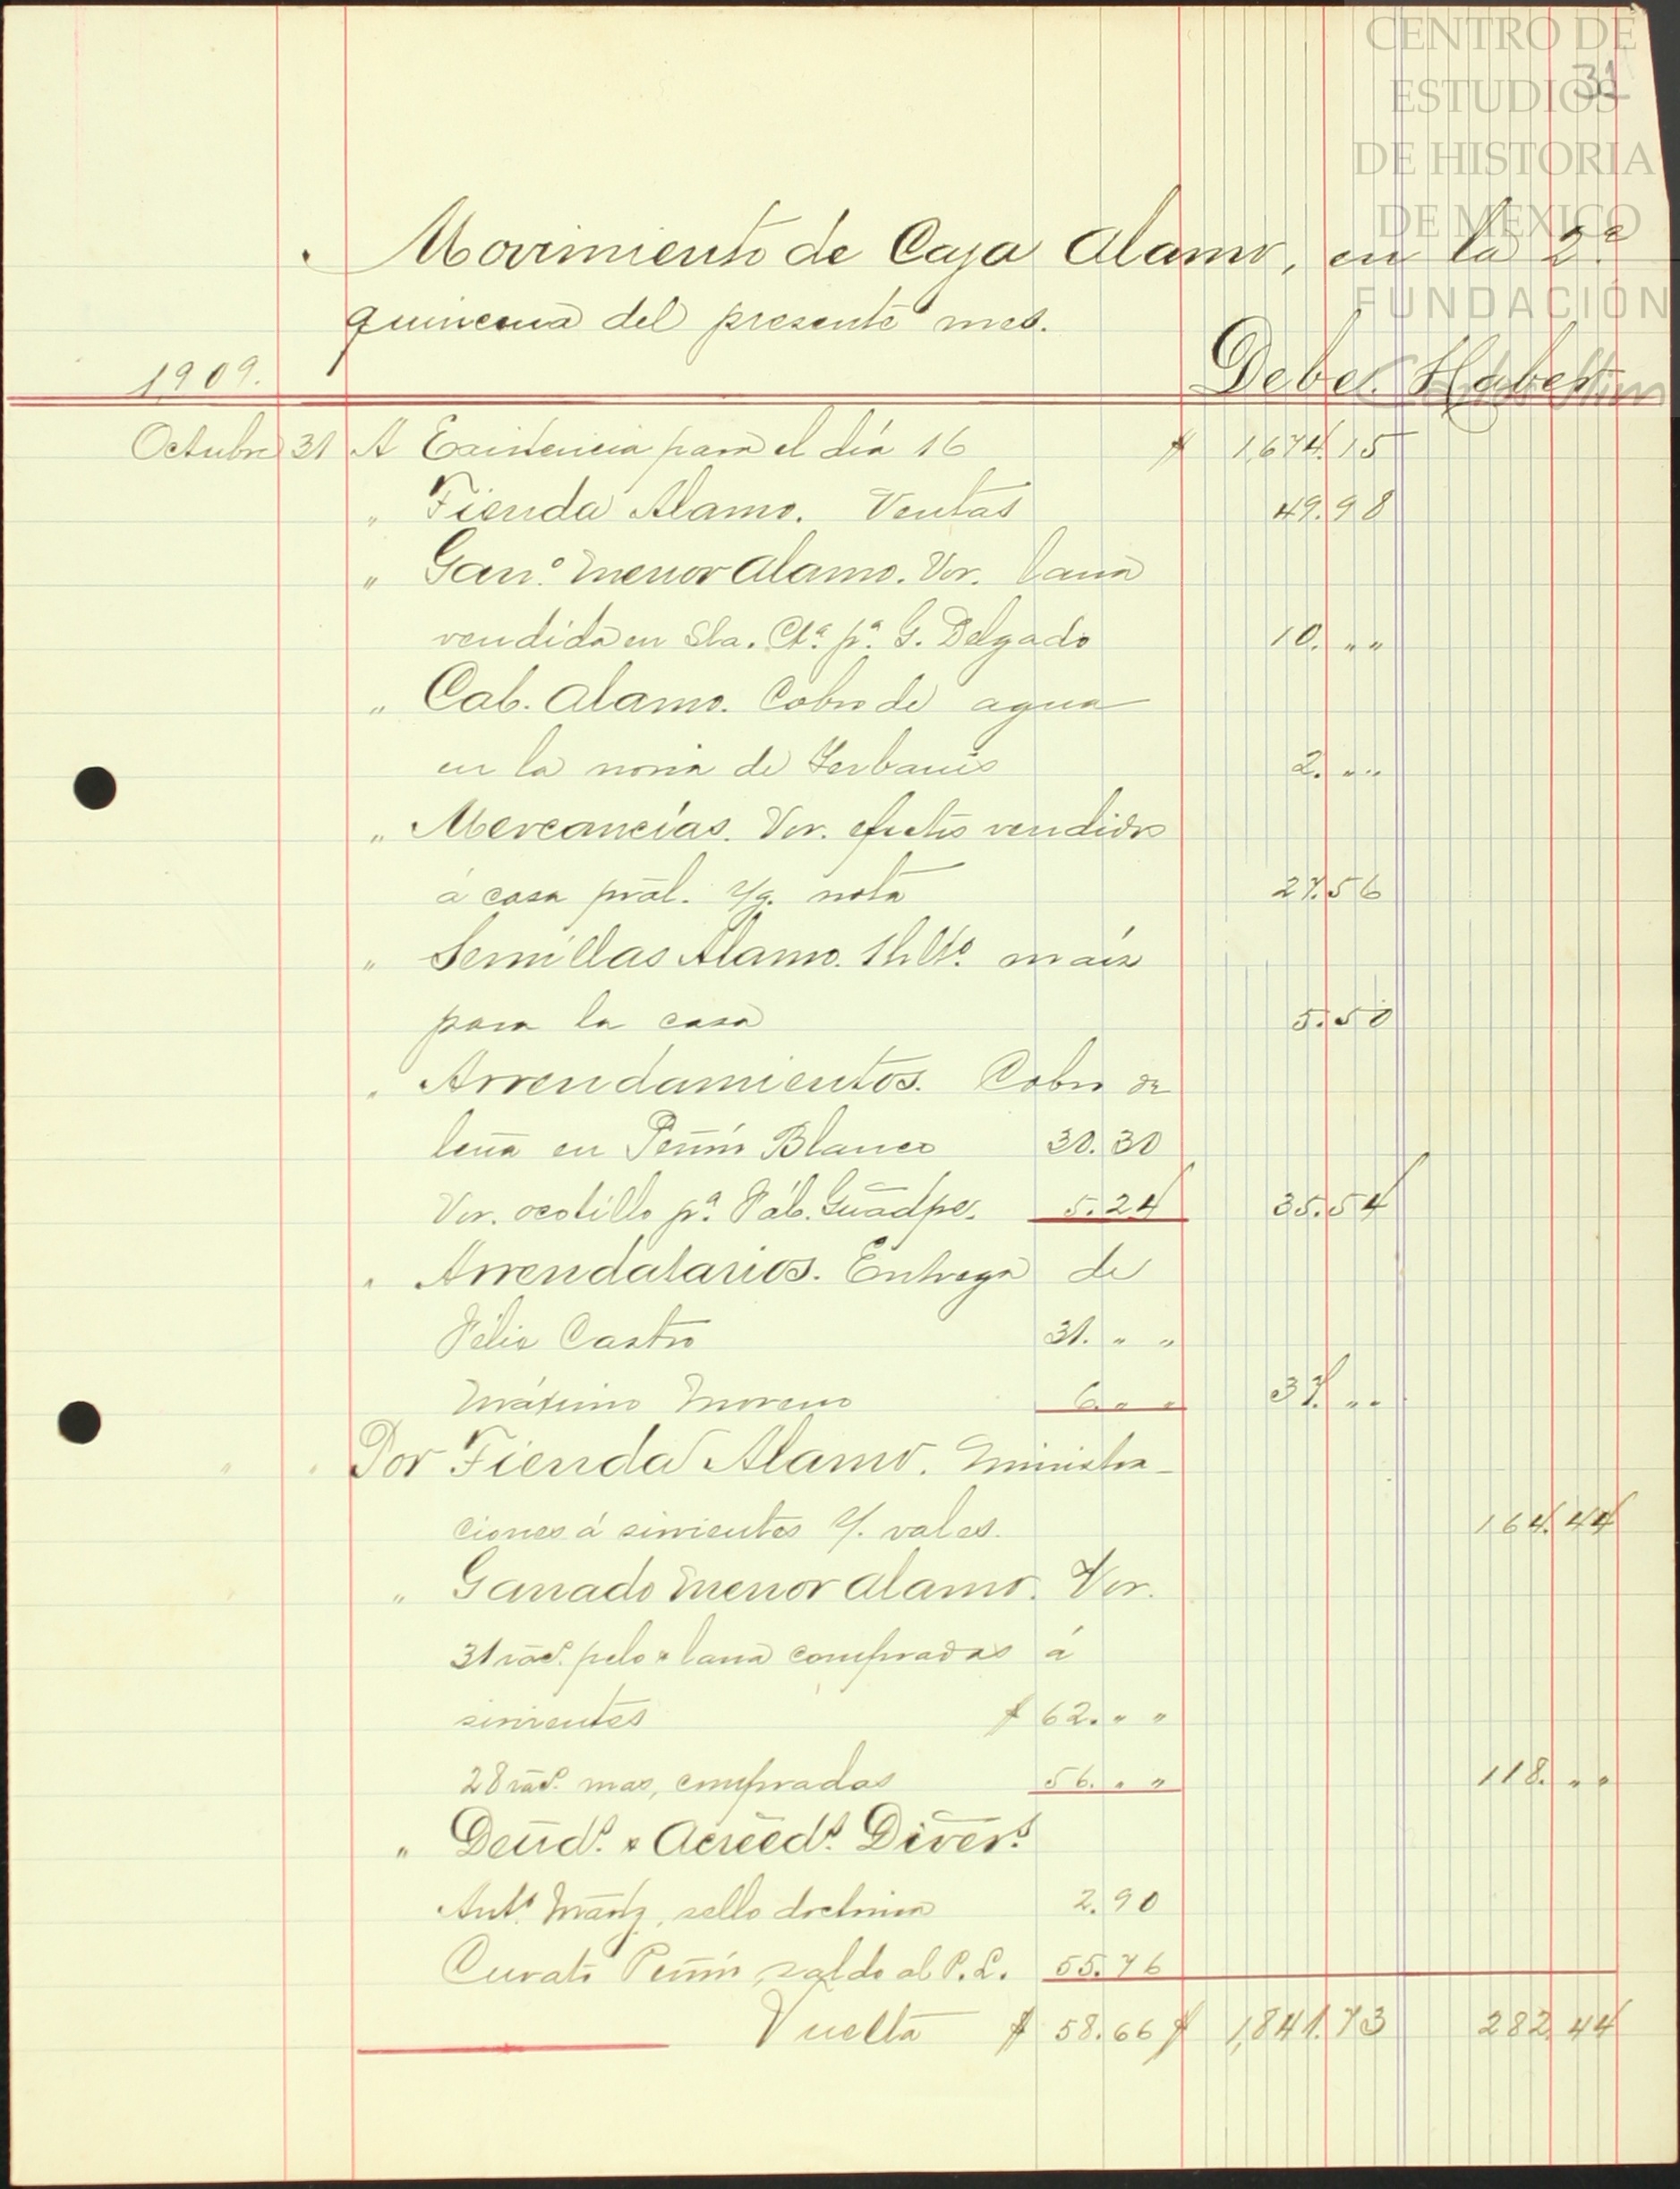 CENTRO DE
ESTUDIOS
DE HISTORIA
DE MEXICO
FUNDACIÓN
31
Movimiento de Caja Alamo, en la 2ª
quincena del presente mes.
1909. Debe. Haber.
Octubre 31 A Existencia para el día 16 $ 1,674.15
" Tienda Alamo. Ventas 49.98
" Gano. Menor Alamo. Vor. lana
vendida en Sta. Cta. pa. G. Delgado 10. " "
" Cab. Alamo. Cobro de agua
en la noria de Yerbanis 2. " "
" Mercancías. Vor. efectos vendidos
á casa pral. s/g. nota 27.56
" Semillas Alamo. 1 hlto. maíz
para la casa 5.50
" Arrendamientos. Cobro de
leña en Peñón Blanco 30.30
Vor. ocotillo pa. Fáb. Guadpe. 5.24 35.54
" Arrendatarios. Entrega de
Félix Castro 31. " "
Máximo Moreno 6. " " 37. " "
" " Por Tienda Alamo. Ministra-
ciones á sirvientes s/. vales. 164.44
" Ganado Menor Alamo. Vor.
31 pelo & lana compradas á
sirvientes $ 62. " "
28 mas, compradas 56. " " 118. " "
" Deuds. & Acreeds. Divers.
Anto. Martz, sello 2.90
Curato Peñón, saldo al P. L. 55.76
Vuelta $ 58.66 $ 1,841.73 282.44